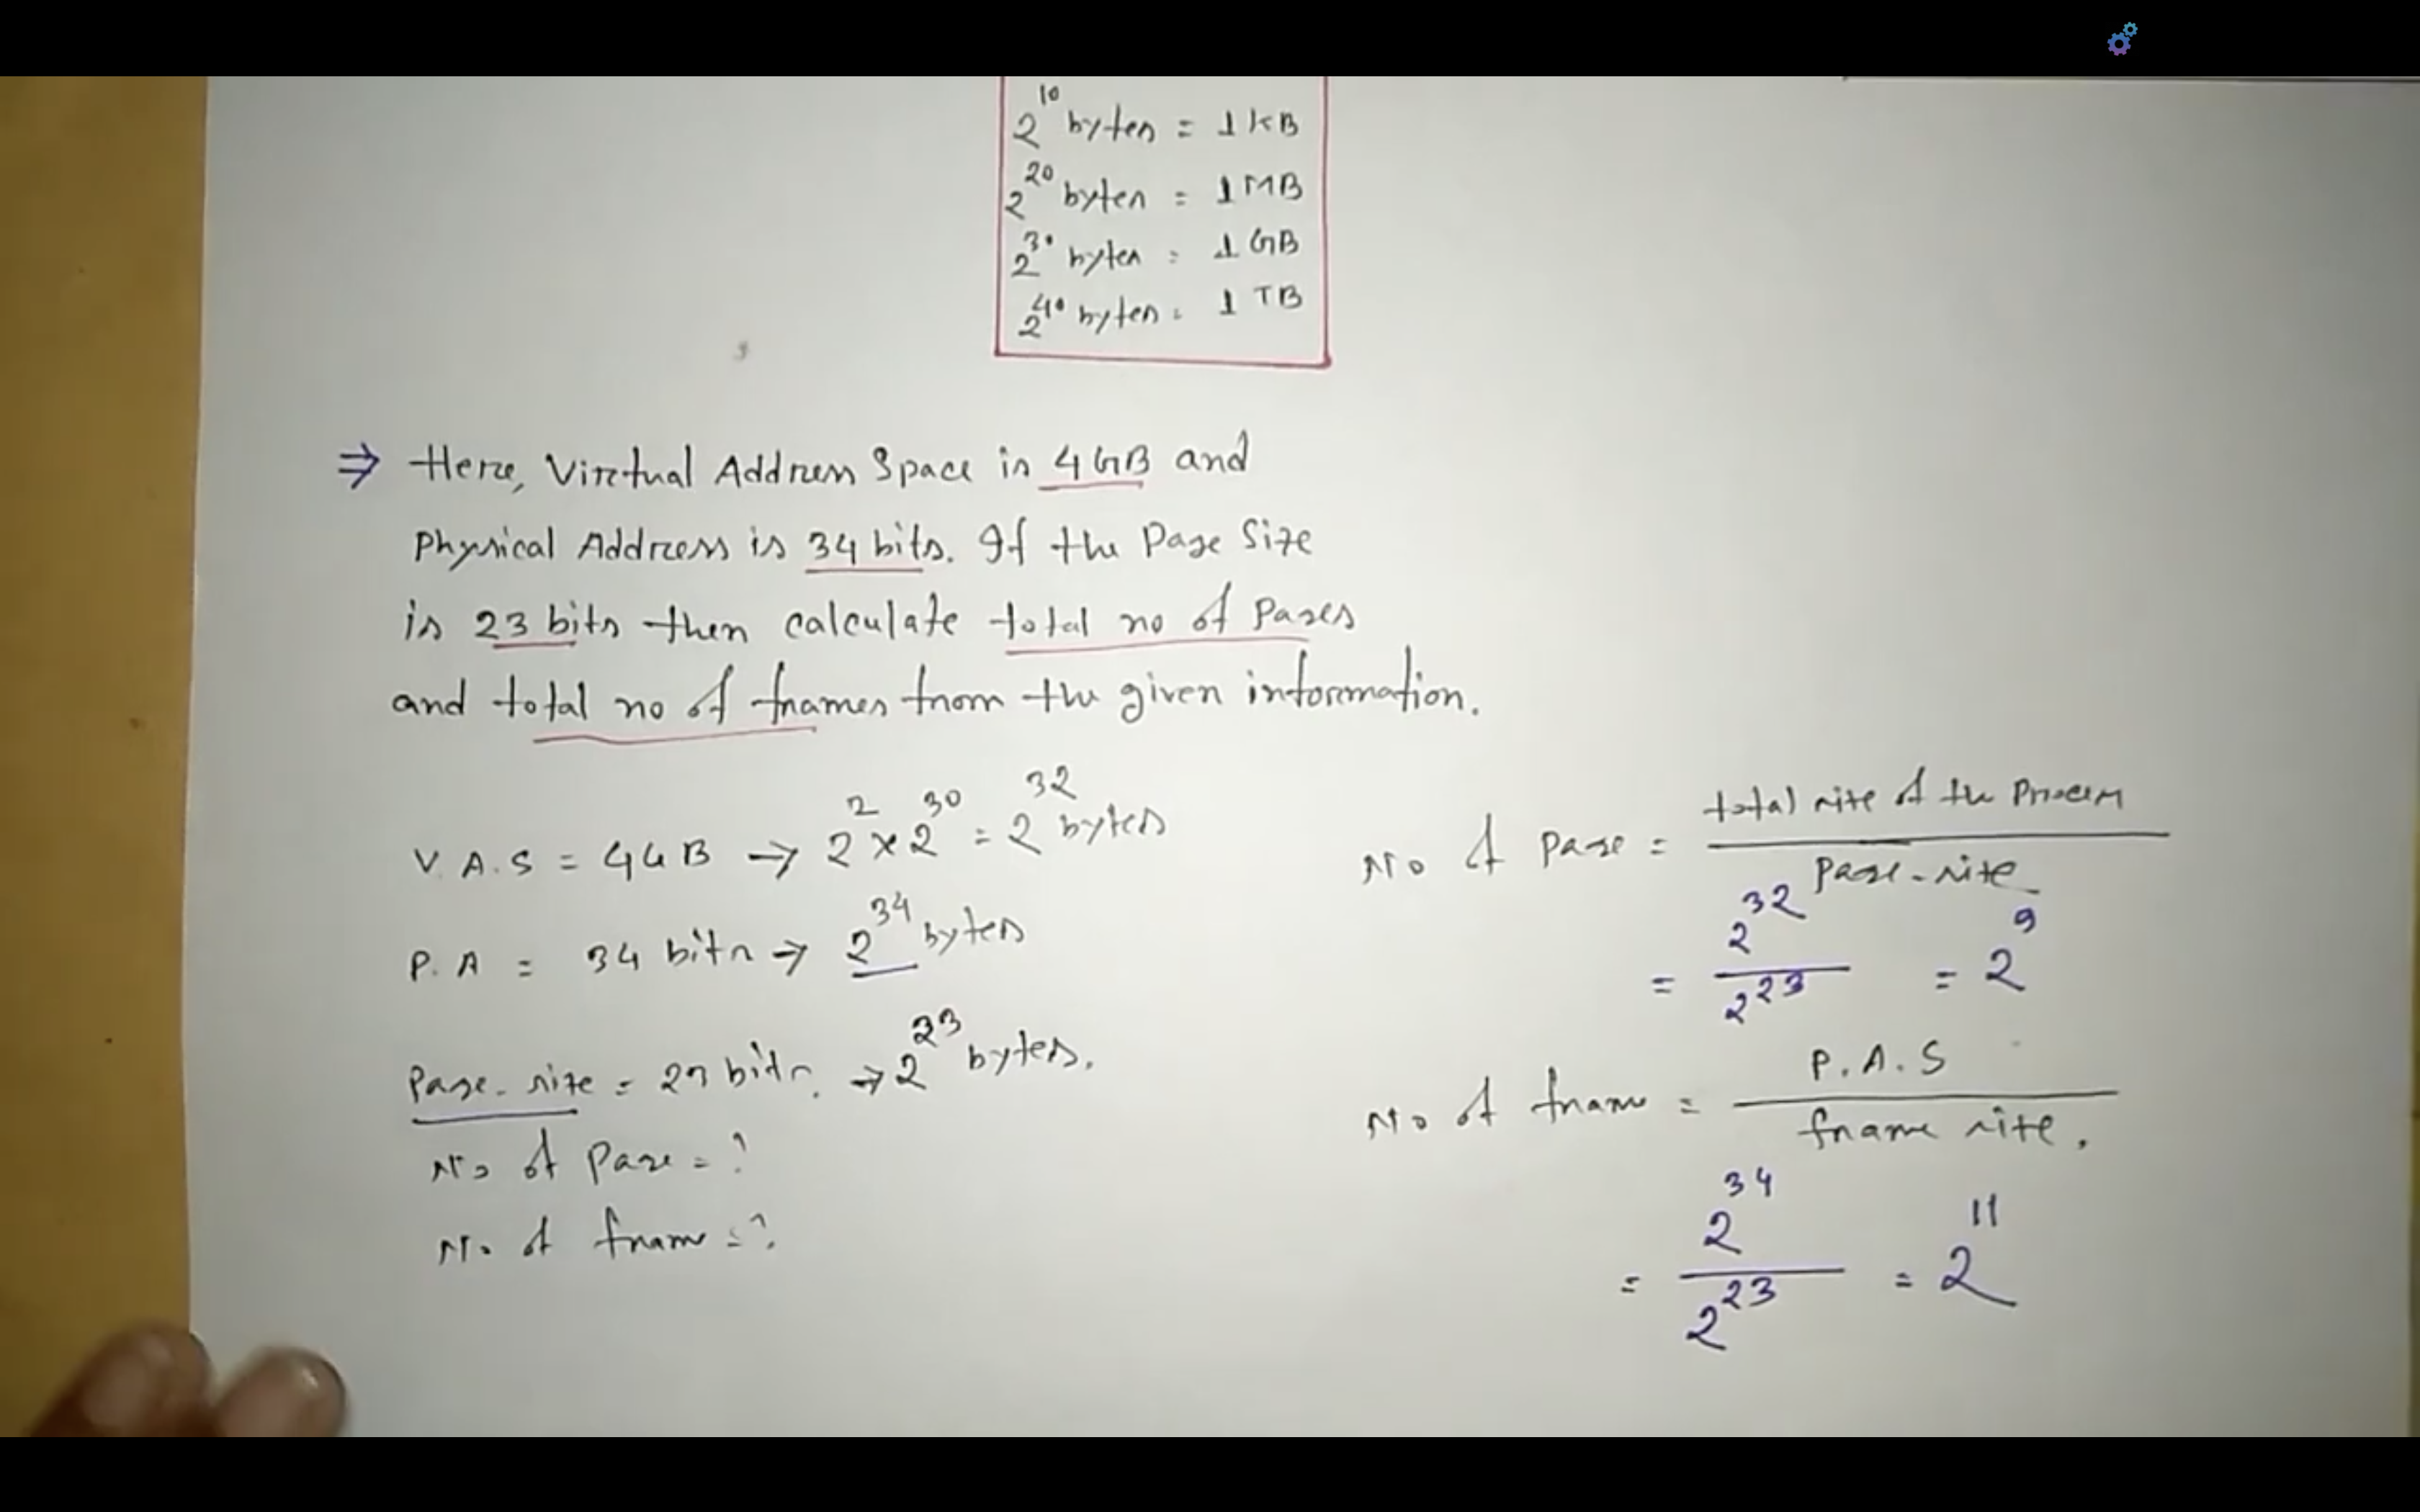 2^10 bytes = 1 KB
2^20 bytes = 1 MB
2^30 bytes = 1 GB
2^40 bytes = 1 TB
⇒ Here, Virtual Address Space is 4 GB and
Physical Address is 34 bits. If the Page Size
is 23 bits then calculate total no of Pages
and total no of frames from the given information.
V.A.S = 4GB → 2^2 × 2^30 = 2^32 bytes
P.A = 34 bits → 2^34 bytes
Page-size = 23 bits. → 2^23 bytes.
No of Page = ?
No of frame = ?
No of Page = total size of the Process / Page-size
= 2^32 / 2^23 = 2^9
No of frame = P.A.S / frame size.
= 2^34 / 2^23 = 2^11